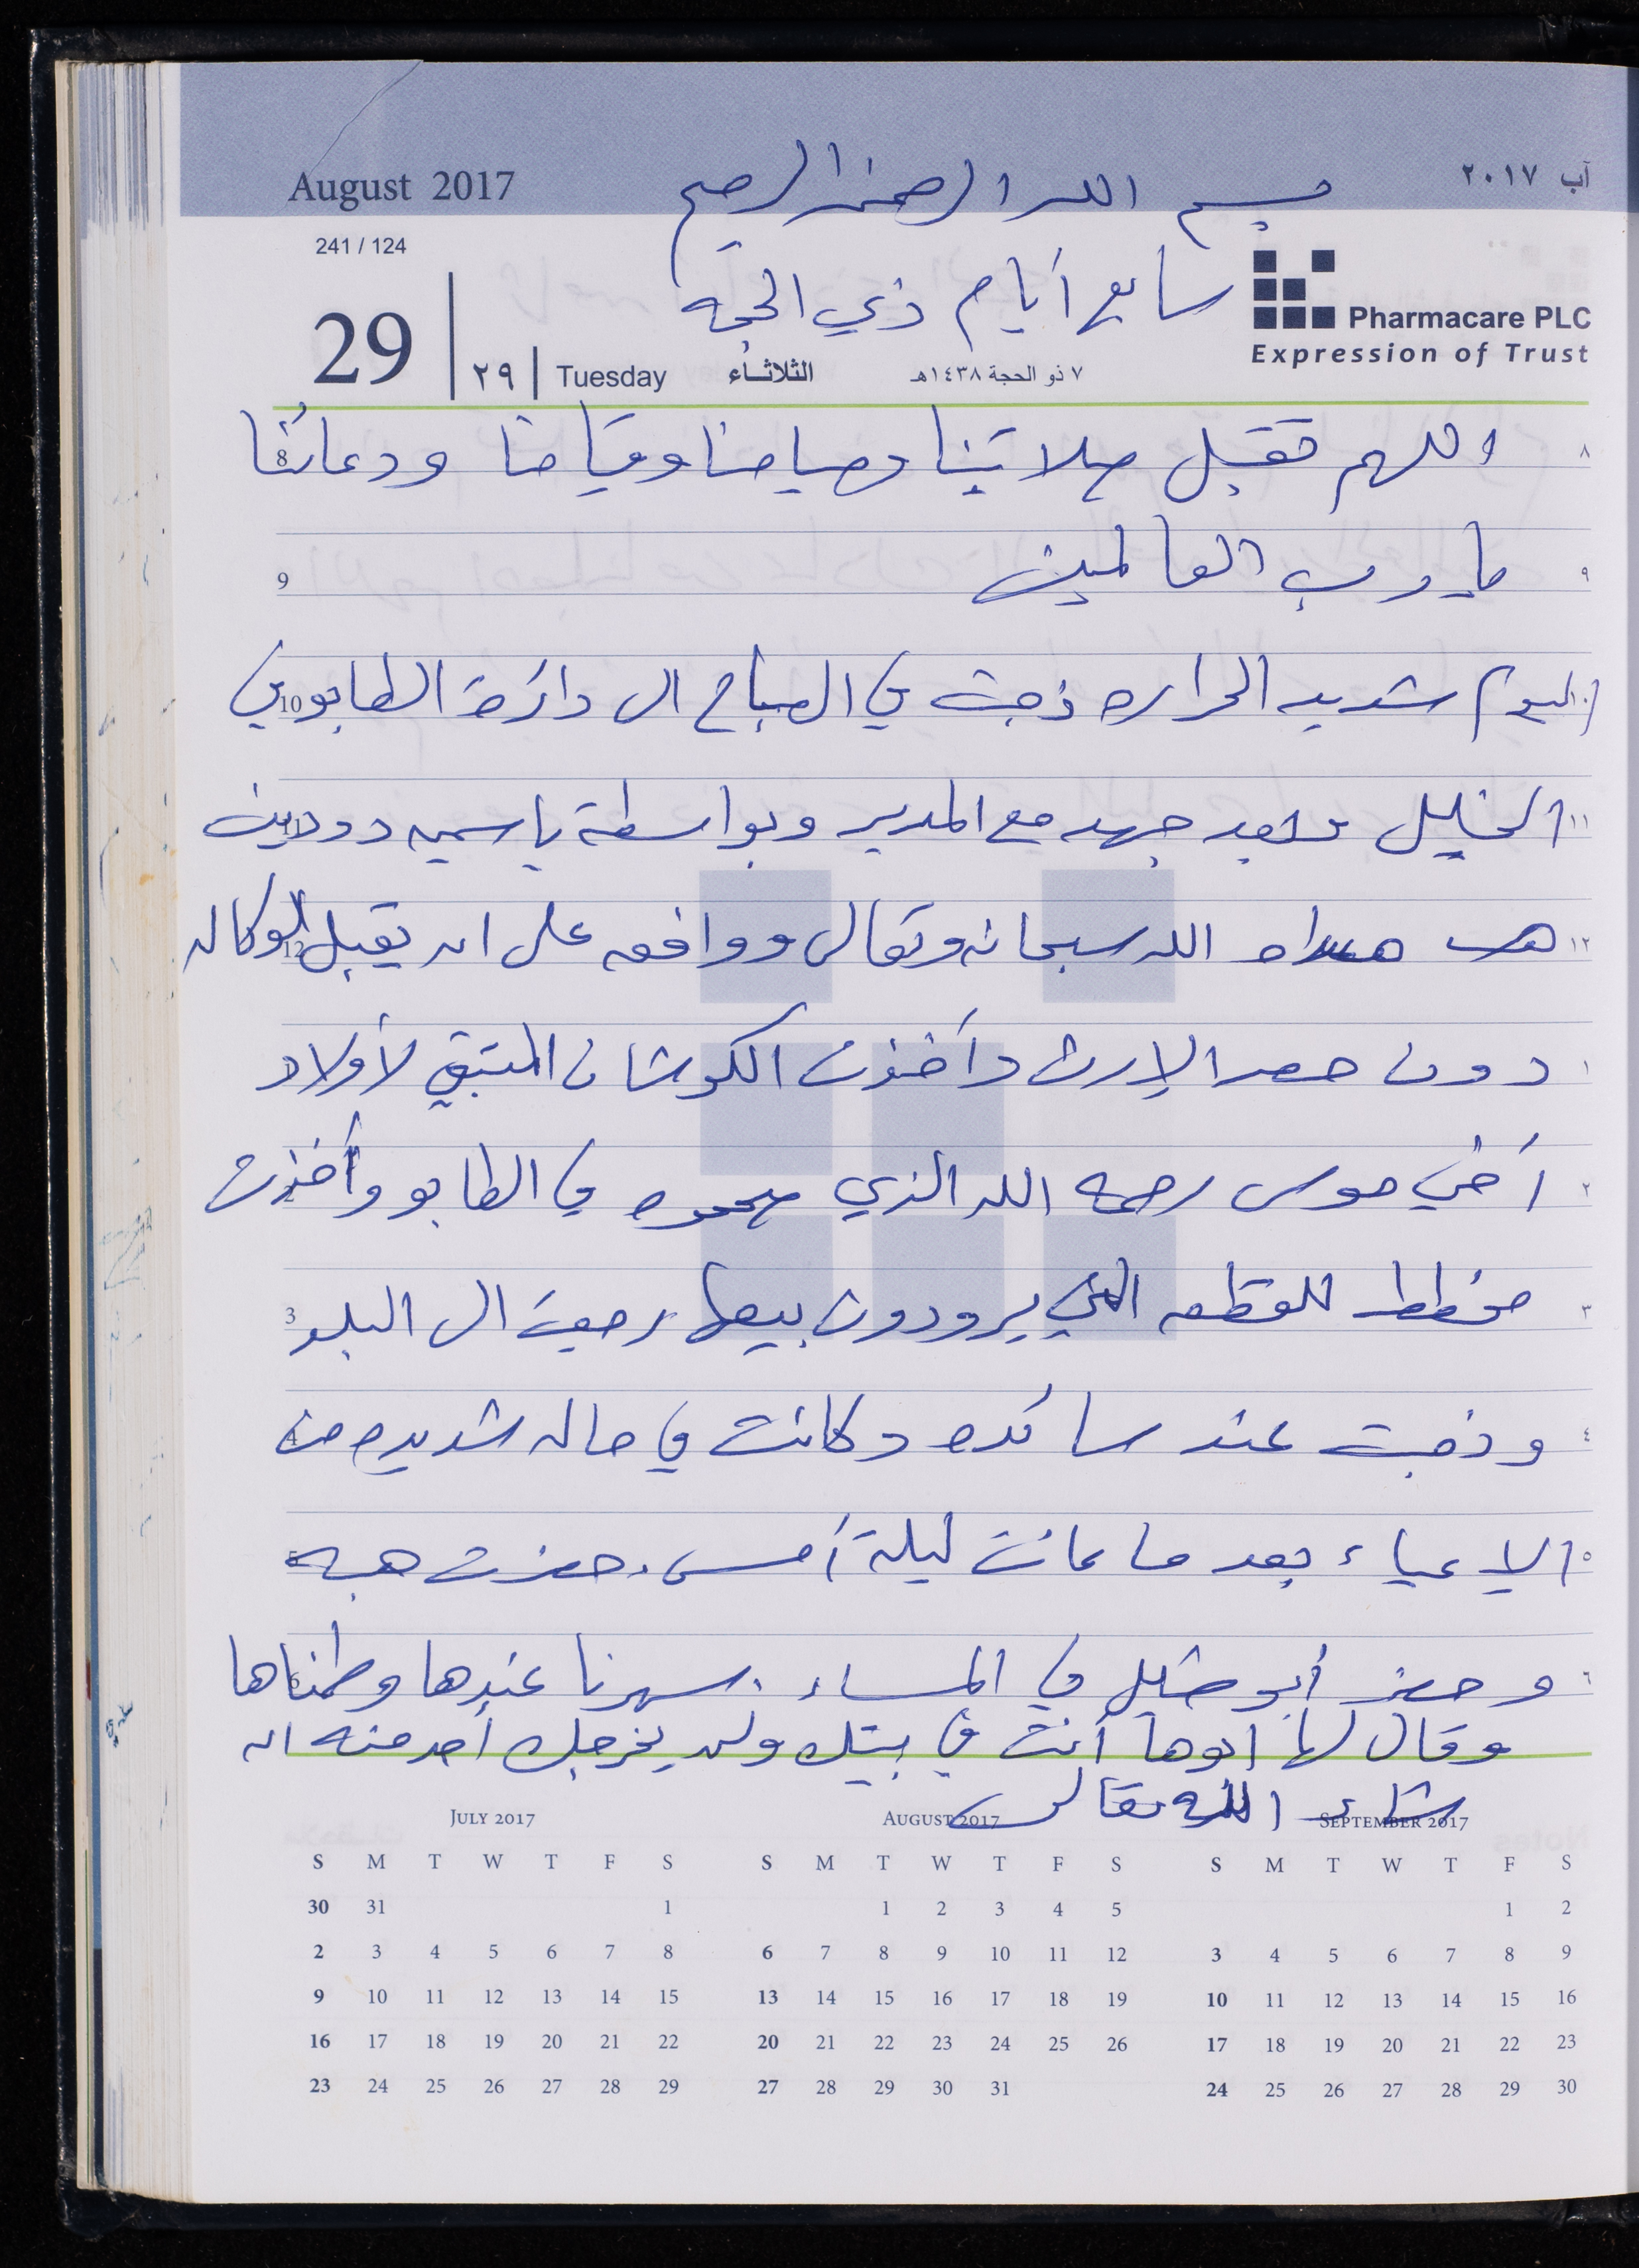 August 2017
بسم الله الرحمن الرحيم
آب ٢٠١٧
241 / 124
سابع أيام ذي الحجه
Pharmacare PLC
Expression of Trust
29 ٢٩ Tuesday الثلاثاء ٧ ذو الحجة ١٤٣٨هـ
٨ اللهم تقبل صلاتنا وصيامنا وقيامنا ودعائنا 8
٩ يا رب العالمين 9
اليوم شديد الحراره ذهبت في الصباح الى دائرة الطابو في 10
١١ الخليل وبعد جهد مع المدير وبواسطة ياسميه دودين 11
١٢ هداه الله سبحانه وتعالى ووافقه على ان يقبل الوكاله 12
١ دون حصر الإرث وأخذت الكوشان المتبقي لأولاد
٢ أخي موسى رحمه الله الذي في الطابو وأخذت 2
٣ مخطط للقطعه التي يرودون بيعها رجعت الى البلد 3
٤ وذهبت عند سائده وكانت في حاله شديده من 4
٥ الاعياء بعد ما عانت ليلة أمس. حضرت هبه 5
٦ وحضر أبو خليل في المساء. سهرنا عندها وطمناها 6
وقال لها ابوها أنت في بيتك ولن يخرجك أحد منه ان
شاء الله تعالى
July 2017 August 2017 September 2017
S M T W T F S S M T W T F S S M T W T F S
30 31 1 1 2 3 4 5 1 2
2 3 4 5 6 7 8 6 7 8 9 10 11 12 3 4 5 6 7 8 9
9 10 11 12 13 14 15 13 14 15 16 17 18 19 10 11 12 13 14 15 16
16 17 18 19 20 21 22 20 21 22 23 24 25 26 17 18 19 20 21 22 23
23 24 25 26 27 28 29 27 28 29 30 31 24 25 26 27 28 29 30